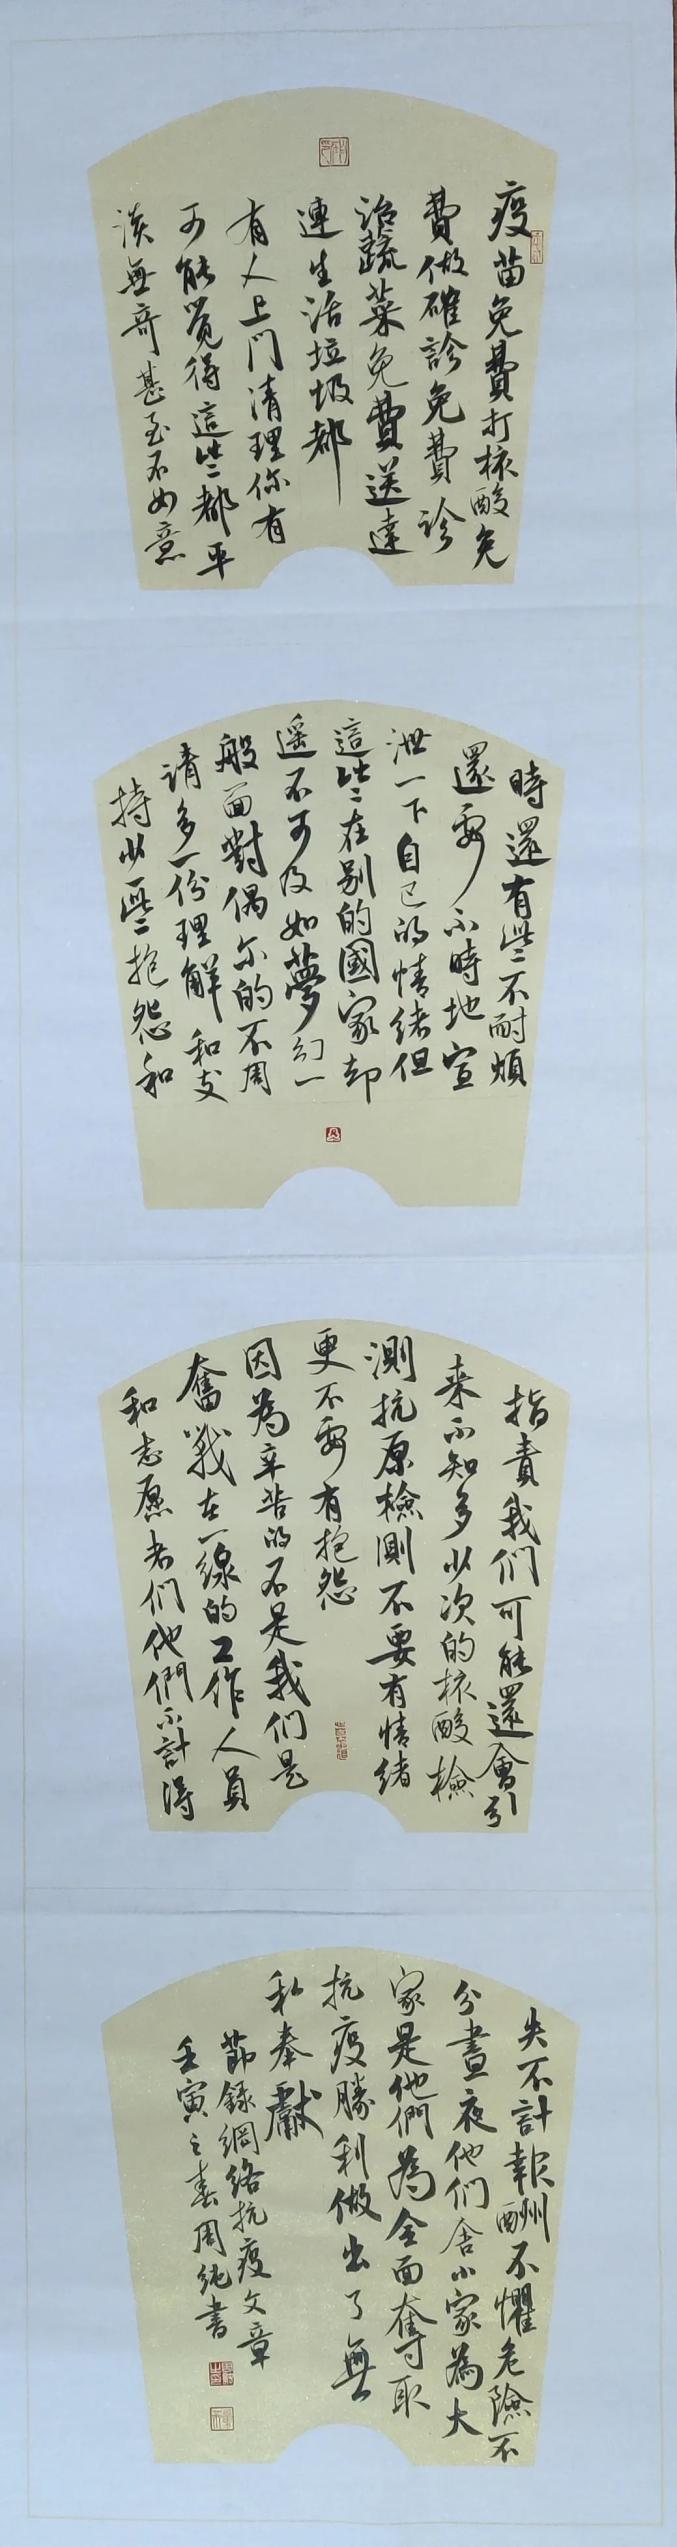 疫苗免費打核酸免
費做確診免費診
治蔬菜免費送達
連生活垃圾都
有人上门清理你有
可能覚得這些都平
淡無奇甚至不如意
時還有些不耐煩
還要不時地宣
泄一下自己的情绪但
這些在别的國家却
遥不可及如夢幻一
般面對偶尔的不周
请多一份理解和支
持少些抱怨和
指責我们可能還會引
来不知多少次的核酸檢
測抗原檢測不要有情绪
更不要有抱怨
因為辛苦的不是我们是
奮戰在一線的工作人員
和志愿者们他們不計得
失不計報酬不懼危險不
分晝夜他们舍小家為大
家是他們為全面奪取
抗疫勝利做出了無
私奉獻
節録網络抗疫文章
壬寅之春周纯書